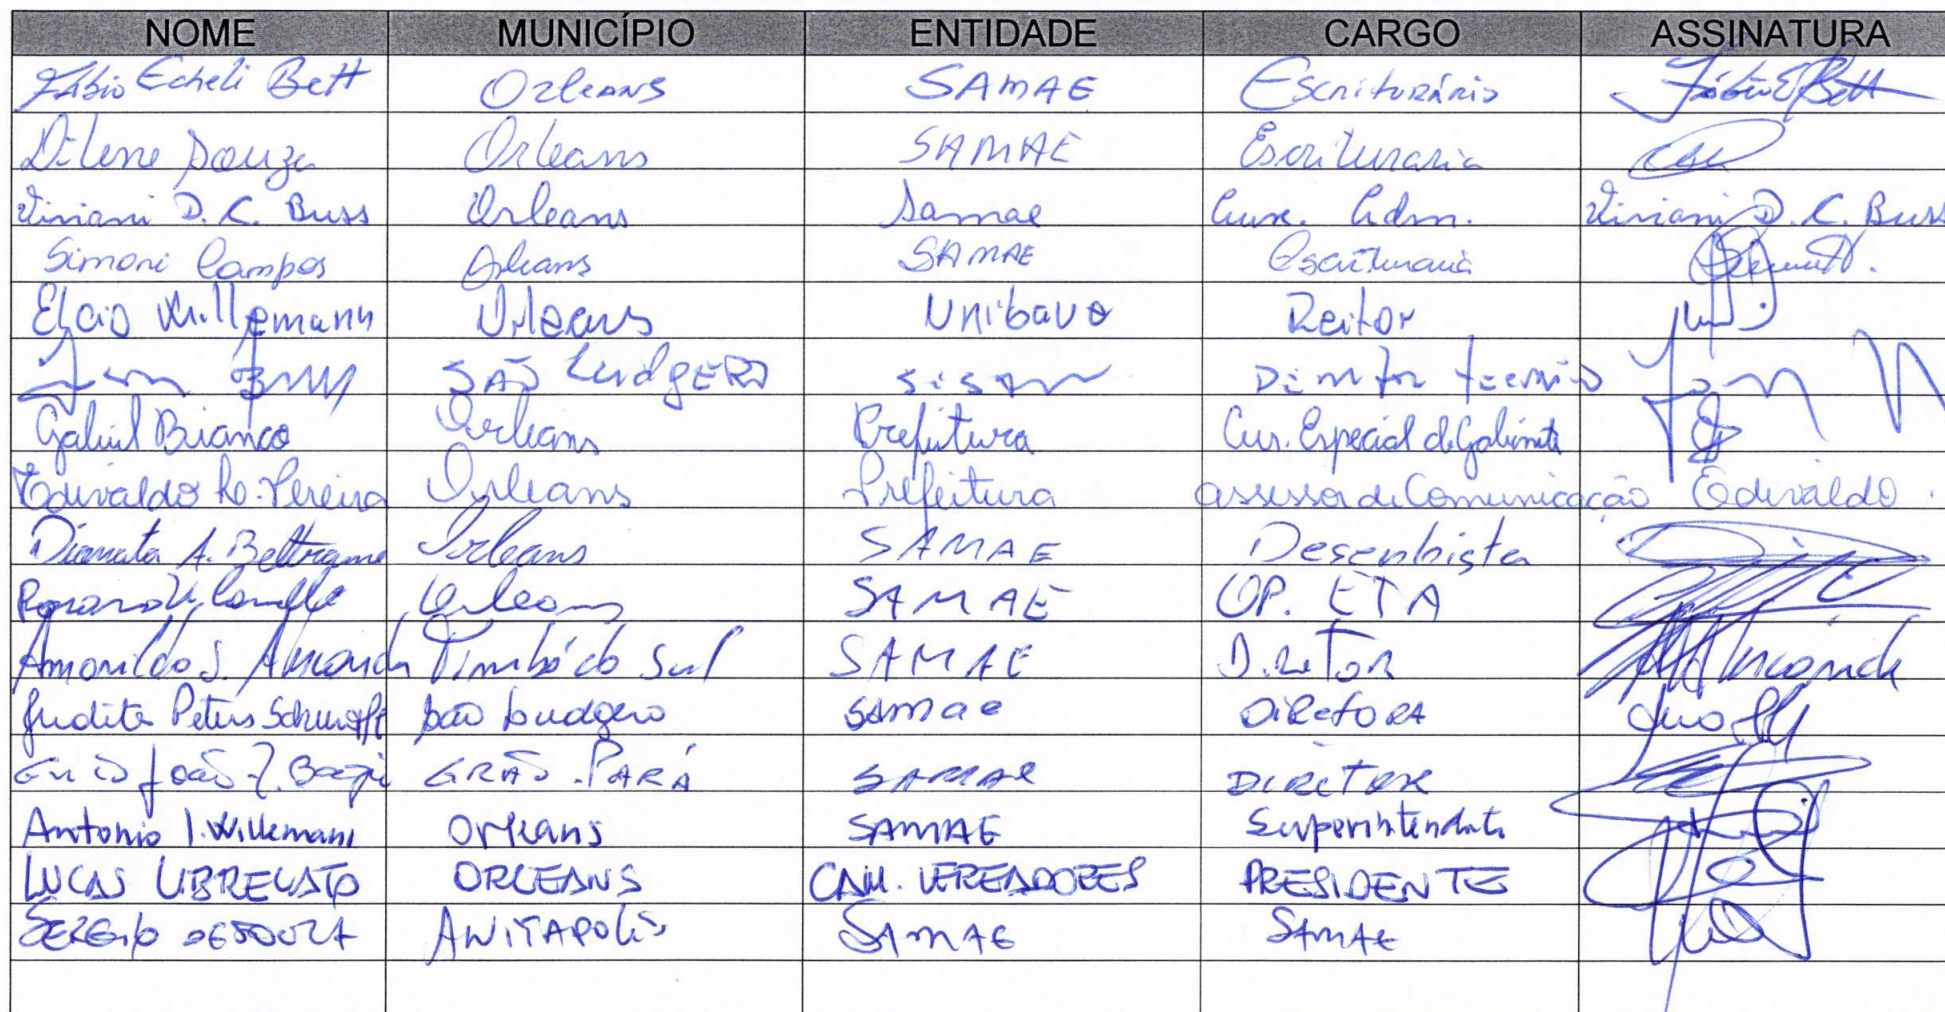 NOME MUNICÍPIO ENTIDADE CARGO ASSINATURA
Fábio Echeli Bett Orleans SAMAE Escriturário Fábio E Bett
Dilene Souza Orleans SAMAE Escrituraria
Viviani D. C. Buss Orleans Samae Aux. Adm. Viviani D. C. Buss
Simoni Campos Orleans SAMAE Escrituraria
Elcio Willemann Orleans Unibave Reitor
SÃO LudgERO
Gabriel Bianco Orleans Prefeitura Especial de Gabinete
Edivaldo Pereira Orleans Prefeitura assessor de Comunicação Edivaldo
A. Beltrame Orleans SAMAE Desenhista
Orleans SAMAE OP. ETA
Amarildo J. Timbé do Sul SAMAE Diretor
Judite Peters Schuroff São Ludgero Samae DiRetORA
João GRÃO-PARÁ SAMAE DIRETOR
Antonio I. Willemann Orleans SAMAE Superintendente
LUCAS LIBRELATO ORLEANS CAM. VEREADORES PRESIDENTE
SERGIO ANITAPOLiS SAMAE SAMAE